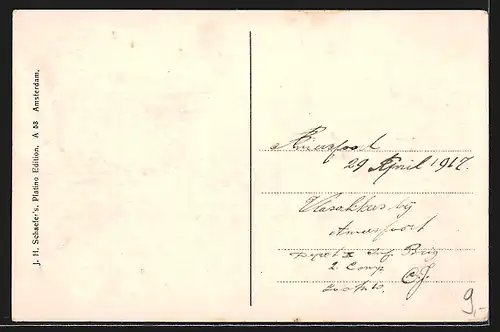 J. H. Schaefer's. Platino Edition. A 53 Amsterdam.
Amersfoort
29 April 1917.
Vlasakkers bij
Amersfoort
Depot X Inf Brig
2. Comp
9,-